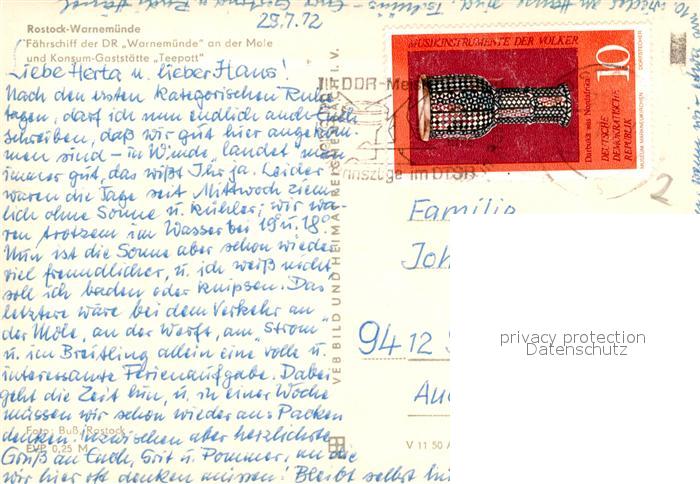 29.7.72
Rostock-Warnemünde
Fährschiff der DR „Warnemünde" an der Mole
und Konsum-Gaststätte „Teepott"
Liebe Herta u. lieber Hans!
Nach den ersten kategorischen Ruhe-
tagen, darf ich nun endlich auch Euch
schreiben, daß wir gut hier angekom-
men sind – in W'mde „landet" man
immer gut, das wißt Ihr ja. Leider
waren die Tage seit Mittwoch ziem-
lich ohne Sonne u. kühler; wir wa-
ren trotzdem im Wasser bei 19 u. 18°
Nun ist die Sonne aber schon wieder
viel freundlicher, u. ich weiß nicht
soll ich baden oder knipsen. Das
letztere wäre bei dem Verkehr an
der Mole, an der Werft, am „Strom"
u. im Breitling allein eine volle u.
interessante Ferienaufgabe. Dabei
geht die Zeit hin, u. in einer Woche
müssen wir schon wieder ans Packen
denken. Inzwischen aber herzlichste
Foto: Buß, Rostock
EVP 0,25 M
Grüße an Euch, Grit u. Pommer, an die
wir hier oft denken müssen! Bleibt selbst
VEB BILD UND HEIMAT REICHENBACH I. V.
V 11 50
MUSIKINSTRUMENTE DER VÖLKER
10
Darbuka aus Nordafrika
DEUTSCHE
DEMOKRATISCHE
REPUBLIK
MUSEUM MARKNEUKIRCHEN
DORFSTECHER
DDR-Meis
im DTSB
2
Familie
Joh
94 12
Au
privacy protection
Datenschutz